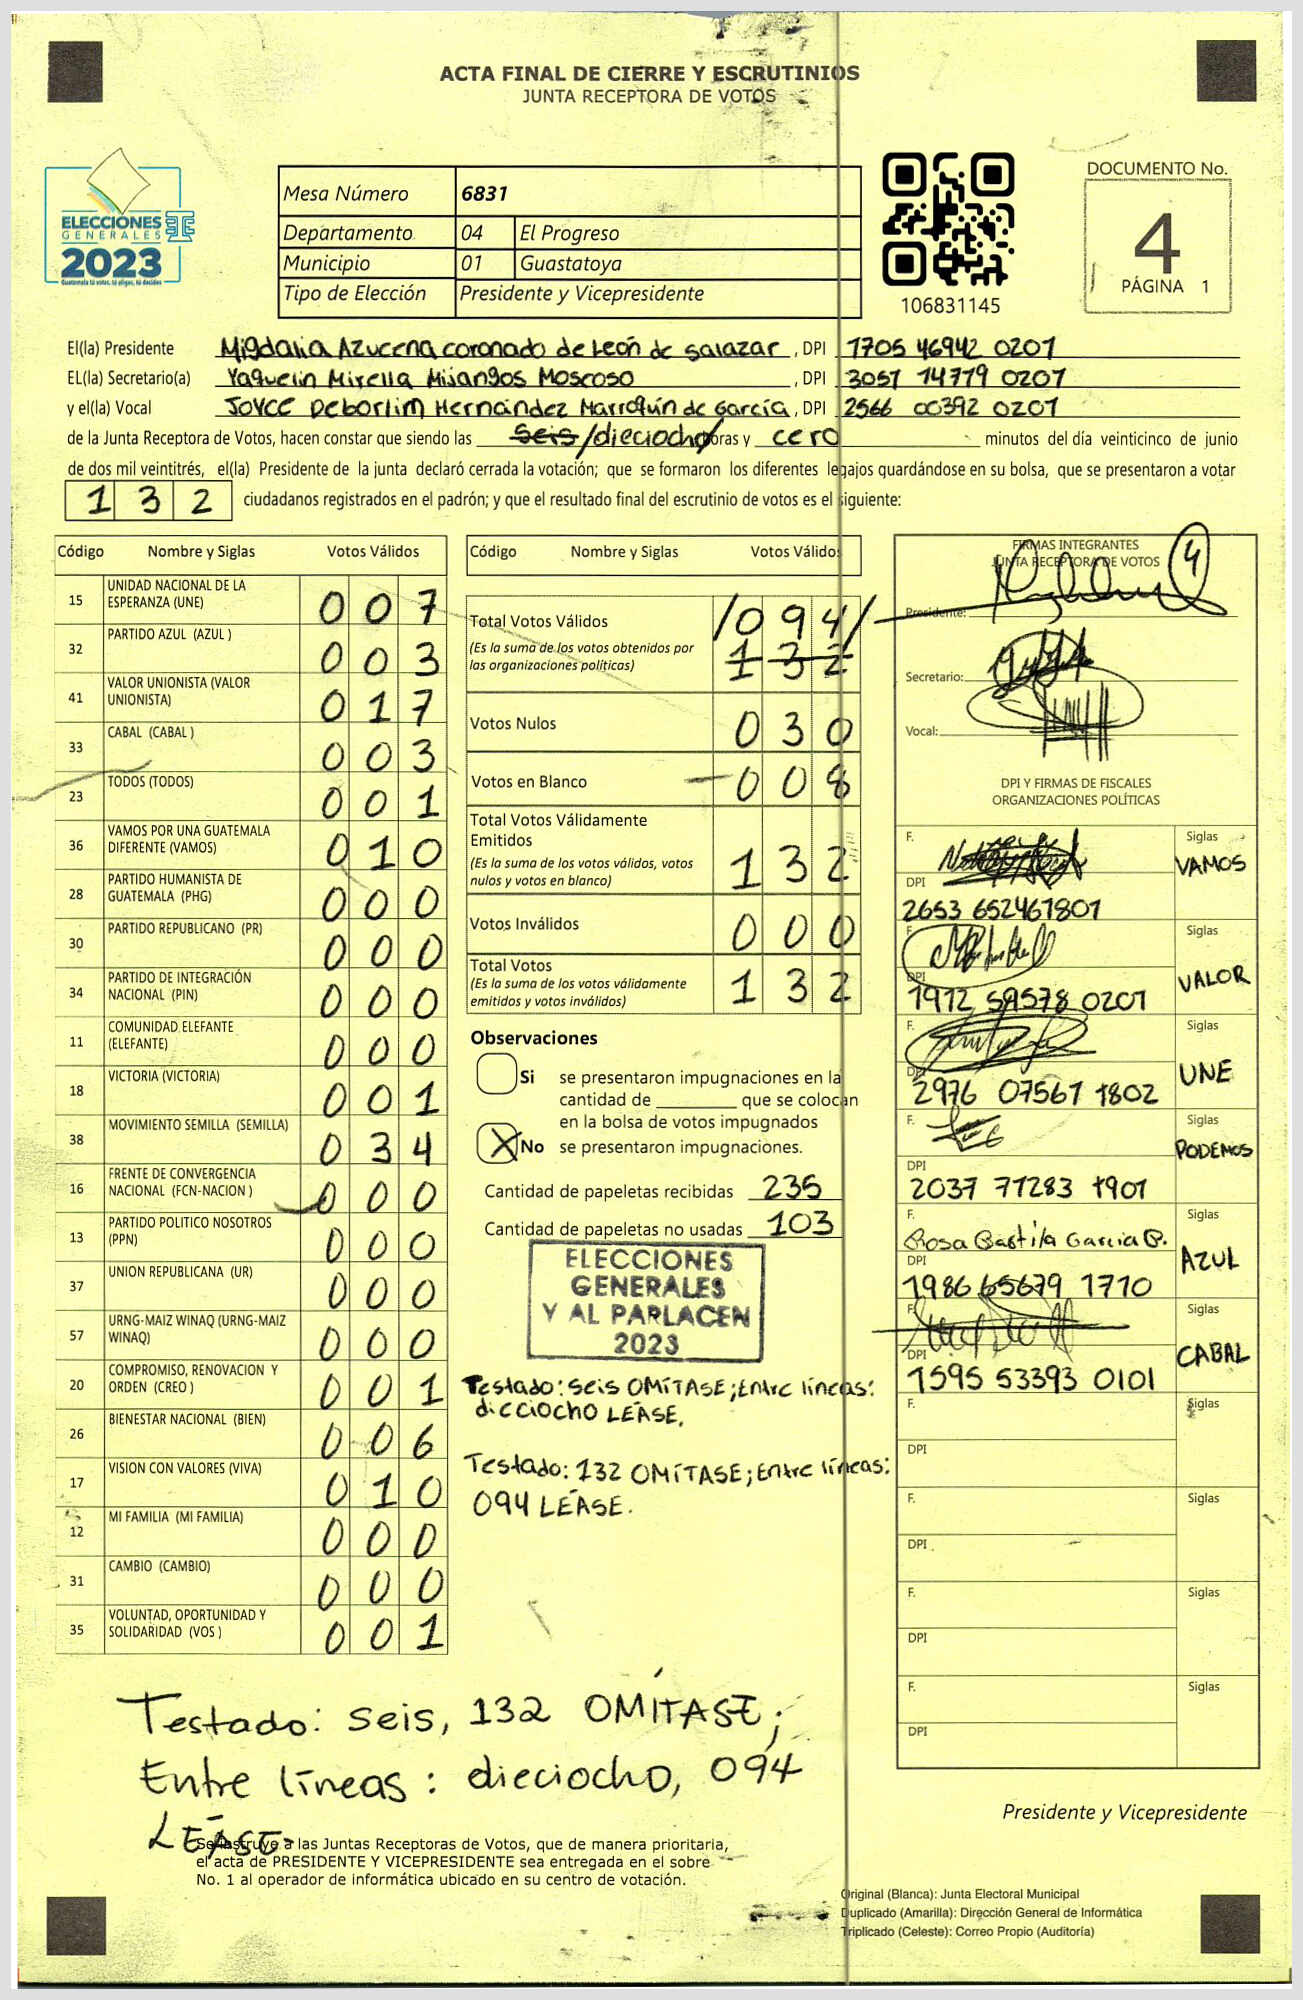 ACTA FINAL DE CIERRE Y ESCRUTINIOS
JUNTA RECEPTORA DE VOTOS
ELECCIONES
GENERALES
2023
Guatemala tú votas, tú eliges, tú decides
Mesa Número 6831
Departamento 04 El Progreso
Municipio 01 Guastatoya
Tipo de Elección Presidente y Vicepresidente
106831145
DOCUMENTO No.
4
PÁGINA 1
El(la) Presidente Migdalia Azucena coronado de León de Salazar, DPI 1705 46942 0201
EL(la) Secretario(a) Yaquelin Mirella Mijangos Moscoso, DPI 3051 14779 0201
y el(la) Vocal Joyce Deborlim Hernández Marroquín de García, DPI 2566 00392 0201
de la Junta Receptora de Votos, hacen constar que siendo las seis /dieciocho/ horas y cero minutos del día veinticinco de junio
de dos mil veintitrés, el(la) Presidente de la junta declaró cerrada la votación; que se formaron los diferentes legajos guardándose en su bolsa, que se presentaron a votar
132 ciudadanos registrados en el padrón; y que el resultado final del escrutinio de votos es el siguiente:
Código Nombre y Siglas Votos Válidos
15 UNIDAD NACIONAL DE LA ESPERANZA (UNE) 0 0 7
32 PARTIDO AZUL (AZUL ) 0 0 3
41 VALOR UNIONISTA (VALOR UNIONISTA) 0 1 7
33 CABAL (CABAL ) 0 0 3
23 TODOS (TODOS) 0 0 1
36 VAMOS POR UNA GUATEMALA DIFERENTE (VAMOS) 0 1 0
28 PARTIDO HUMANISTA DE GUATEMALA (PHG) 0 0 0
30 PARTIDO REPUBLICANO (PR) 0 0 0
34 PARTIDO DE INTEGRACIÓN NACIONAL (PIN) 0 0 0
11 COMUNIDAD ELEFANTE (ELEFANTE) 0 0 0
18 VICTORIA (VICTORIA) 0 0 1
38 MOVIMIENTO SEMILLA (SEMILLA) 0 3 4
16 FRENTE DE CONVERGENCIA NACIONAL (FCN-NACION ) 0 0 0
13 PARTIDO POLITICO NOSOTROS (PPN) 0 0 0
37 UNION REPUBLICANA (UR) 0 0 0
57 URNG-MAIZ WINAQ (URNG-MAIZ WINAQ) 0 0 0
20 COMPROMISO, RENOVACION Y ORDEN (CREO ) 0 0 1
26 BIENESTAR NACIONAL (BIEN) 0 0 6
17 VISION CON VALORES (VIVA) 0 1 0
12 MI FAMILIA (MI FAMILIA) 0 0 0
31 CAMBIO (CAMBIO) 0 0 0
35 VOLUNTAD, OPORTUNIDAD Y SOLIDARIDAD (VOS ) 0 0 1
Código Nombre y Siglas Votos Válidos
Total Votos Válidos /0 9 4/
(Es la suma de los votos obtenidos por
las organizaciones políticas) 1 3 2
Votos Nulos 0 3 0
Votos en Blanco 0 0 8
Total Votos Válidamente
Emitidos
(Es la suma de los votos válidos, votos
nulos y votos en blanco) 1 3 2
Votos Inválidos 0 0 0
Total Votos
(Es la suma de los votos válidamente
emitidos y votos inválidos) 1 3 2
Observaciones
Si se presentaron impugnaciones en la
cantidad de ________ que se colocan
en la bolsa de votos impugnados
X No se presentaron impugnaciones.
Cantidad de papeletas recibidas 235
Cantidad de papeletas no usadas 103
ELECCIONES
GENERALES
Y AL PARLACEN
2023
Testado: seis OMÍTASE; Entre líneas:
dieciocho LÉASE.
Testado: 132 OMÍTASE; Entre líneas:
094 LÉASE.
FIRMAS INTEGRANTES
JUNTA RECEPTORA DE VOTOS
4
Presidente:
Secretario:
Vocal:
DPI Y FIRMAS DE FISCALES
ORGANIZACIONES POLÍTICAS
F. Siglas
VAMOS
DPI
2653 652461801
F. Siglas
VALOR
DPI
1912 59578 0201
F. Siglas
UNE
DPI
2976 07561 1802
F. Siglas
PODEMOS
DPI
2037 71283 1901
F. Siglas
Rosa Bastila Garcia P.
AZUL
DPI
1986 65679 1710
F. Siglas
CABAL
DPI
1595 53393 0101
F. Siglas
DPI
F. Siglas
DPI
F. Siglas
DPI
F. Siglas
DPI
Testado: seis, 132 OMÍTASE;
Entre líneas: dieciocho, 094
LÉASE.
Se instruye a las Juntas Receptoras de Votos, que de manera prioritaria,
el acta de PRESIDENTE Y VICEPRESIDENTE sea entregada en el sobre
No. 1 al operador de informática ubicado en su centro de votación.
Presidente y Vicepresidente
Original (Blanca): Junta Electoral Municipal
Duplicado (Amarilla): Dirección General de Informática
Triplicado (Celeste): Correo Propio (Auditoría)